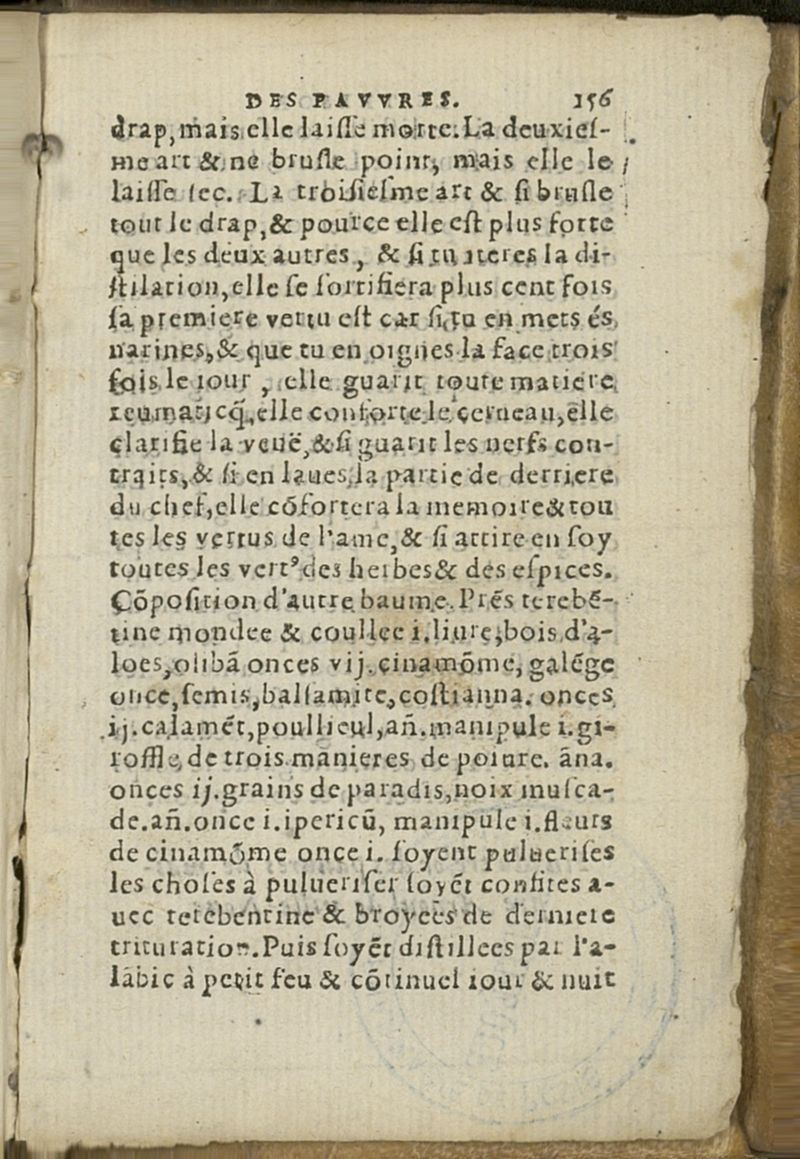 DES PAVVRES. 156
drap, mais elle laisse morte. La deuxies-
me art & ne brusle point, mais elle le
laisse sec. La troisiesme art & si brusle
tout le drap, & pource elle est plus forte
que les deux autres, & si tu iteres la di-
stilation, elle se fortifiera plus cent fois
sa premiere vertu est car si tu en mets és
narines, & que tu en oignes la face trois
fois le iour, elle guarit toute matiere
reumaticq̃, elle conforte le cerueau, elle
clarifie la veuë, & si guarit les nerfs con-
traits, & si en laues la partie de derriere
du chef, elle cõfortera la memoire & tou
tes les vertus de l'ame, & si attire en soy
toutes les vertꝰ des herbes & des espices.
Cõposition d'autre baume. Prés terebẽ-
tine mondee & coullee i. liure, bois d'a-
loes, olibã onces vij. cinamõme, galẽge
once, semis, balsamite, costianna. onces
ij. calamẽt, poullieul, añ. manipule i. gi-
roffle, de trois manieres de poiure. ãna.
onces ij. grains de paradis, noix musca-
de. añ. once i. ipericũ, manipule i. fleurs
de cinamõme once i. soyent puluerises
les choses à pulueriser soyẽt confites a-
uec terebentine & broyees de derniere
trituration. Puis soyẽt distillees par l'a-
lãbic à petit feu & cõtinuel iour & nuit